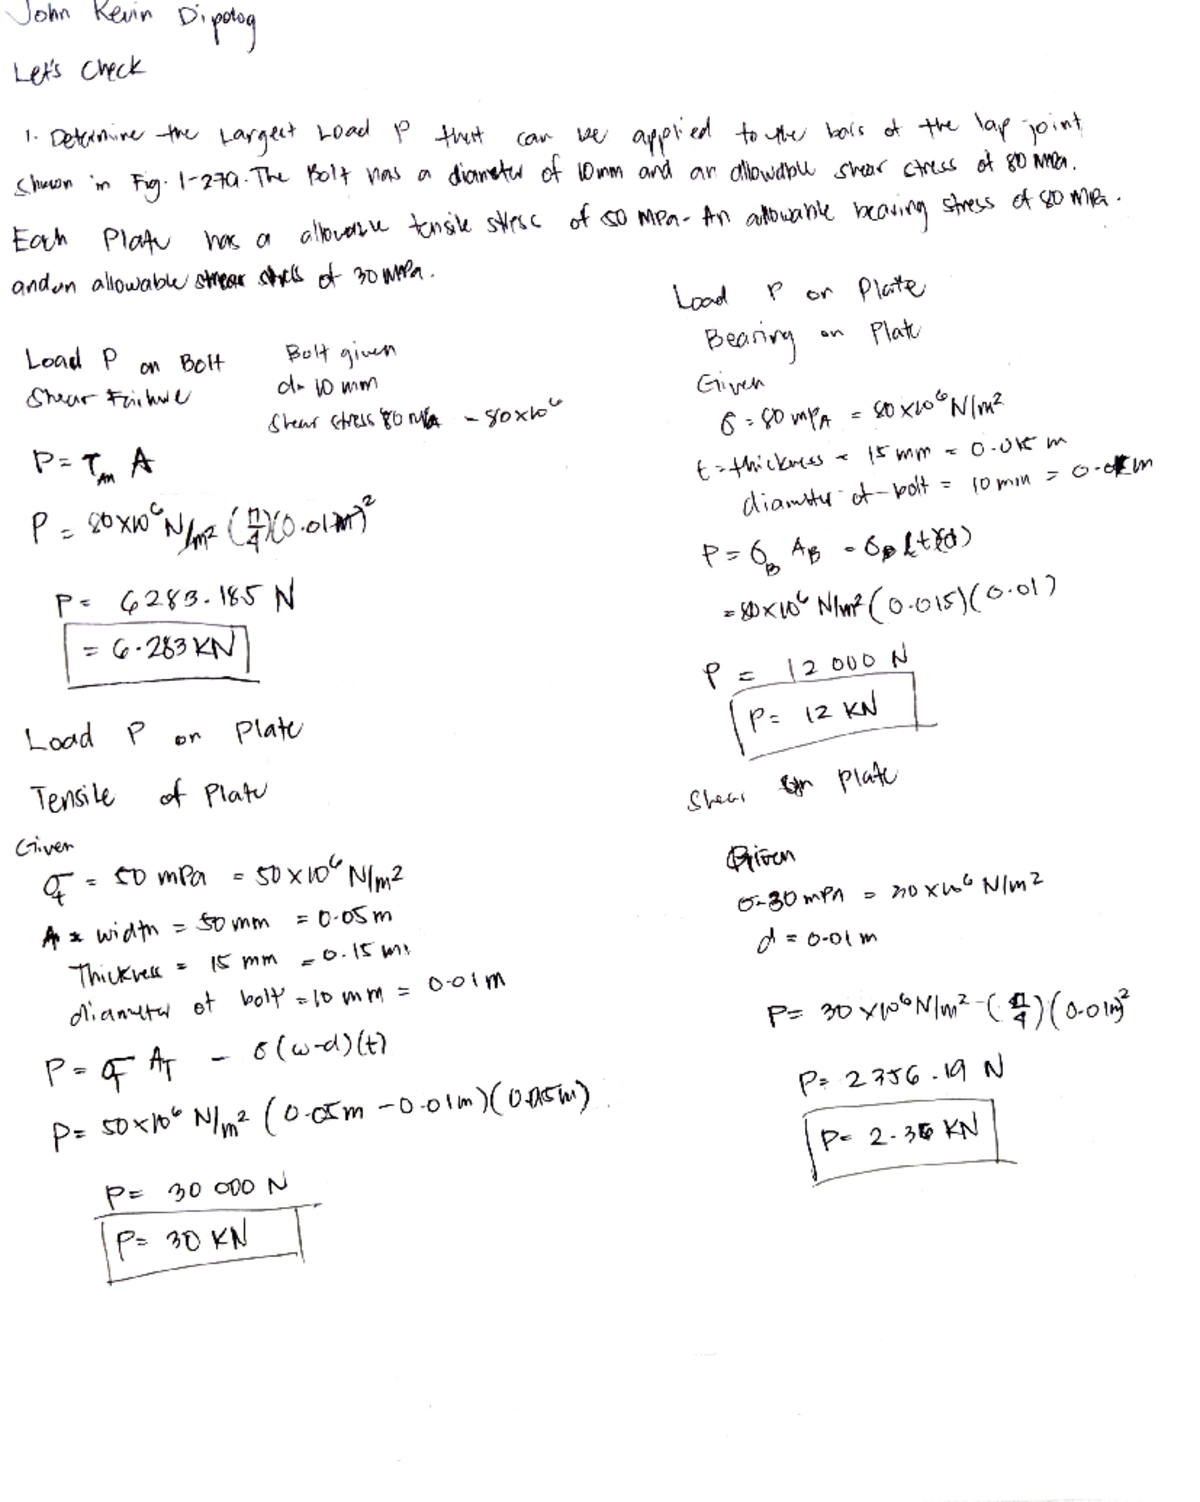 John Kevin Dipolog
Let's Check
1. Determine the Largest Load P that can be applied to the bars of the lap joint
Shown in Fig. 1-27a. The Bolt has a diameter of 10mm and an allowable shear stress of 80 MPa.
Each Plate has a allowable tensile stress of 50 MPa- An allowable bearing stress of 80 MPa.
and an allowable shear stress of 30 MPa.
Load P on Bolt
Shear Failure
Bolt given
d= 10 mm
Shear stress 80 MPa = 80x10⁶
P= τ A
P = 80x10⁶ N/m² (π/4)(0.01m)²
P= 6283.185 N
= 6.283 KN
Load P on Plate
Tensile of Plate
Given
σt = 50 mPa = 50x10⁶ N/m²
width = 50 mm = 0.05 m
Thickness = 15 mm = 0.15 m
diameter of bolt = 10 mm = 0.01 m
P= σT AT = σ(w-d)(t)
P= 50x10⁶ N/m² (0.05m - 0.01m)(0.015m)
P= 30 000 N
P= 30 KN
Load P on Plate
Bearing on Plate
Given
σ = 80 mPA = 80x10⁶ N/m²
t = thickness = 15 mm = 0.015 m
diameter of bolt = 10 mm = 0.01m
P= σB AB = σB (t)(d)
= 80x10⁶ N/m² (0.015)(0.01)
P = 12 000 N
P= 12 KN
Shear on plate
Given
σ=30 mPA = 30x10⁶ N/m²
d = 0.01 m
P= 30 x10⁶ N/m² - (π/4)(0.01m)²
P= 2356.19 N
P= 2.36 KN